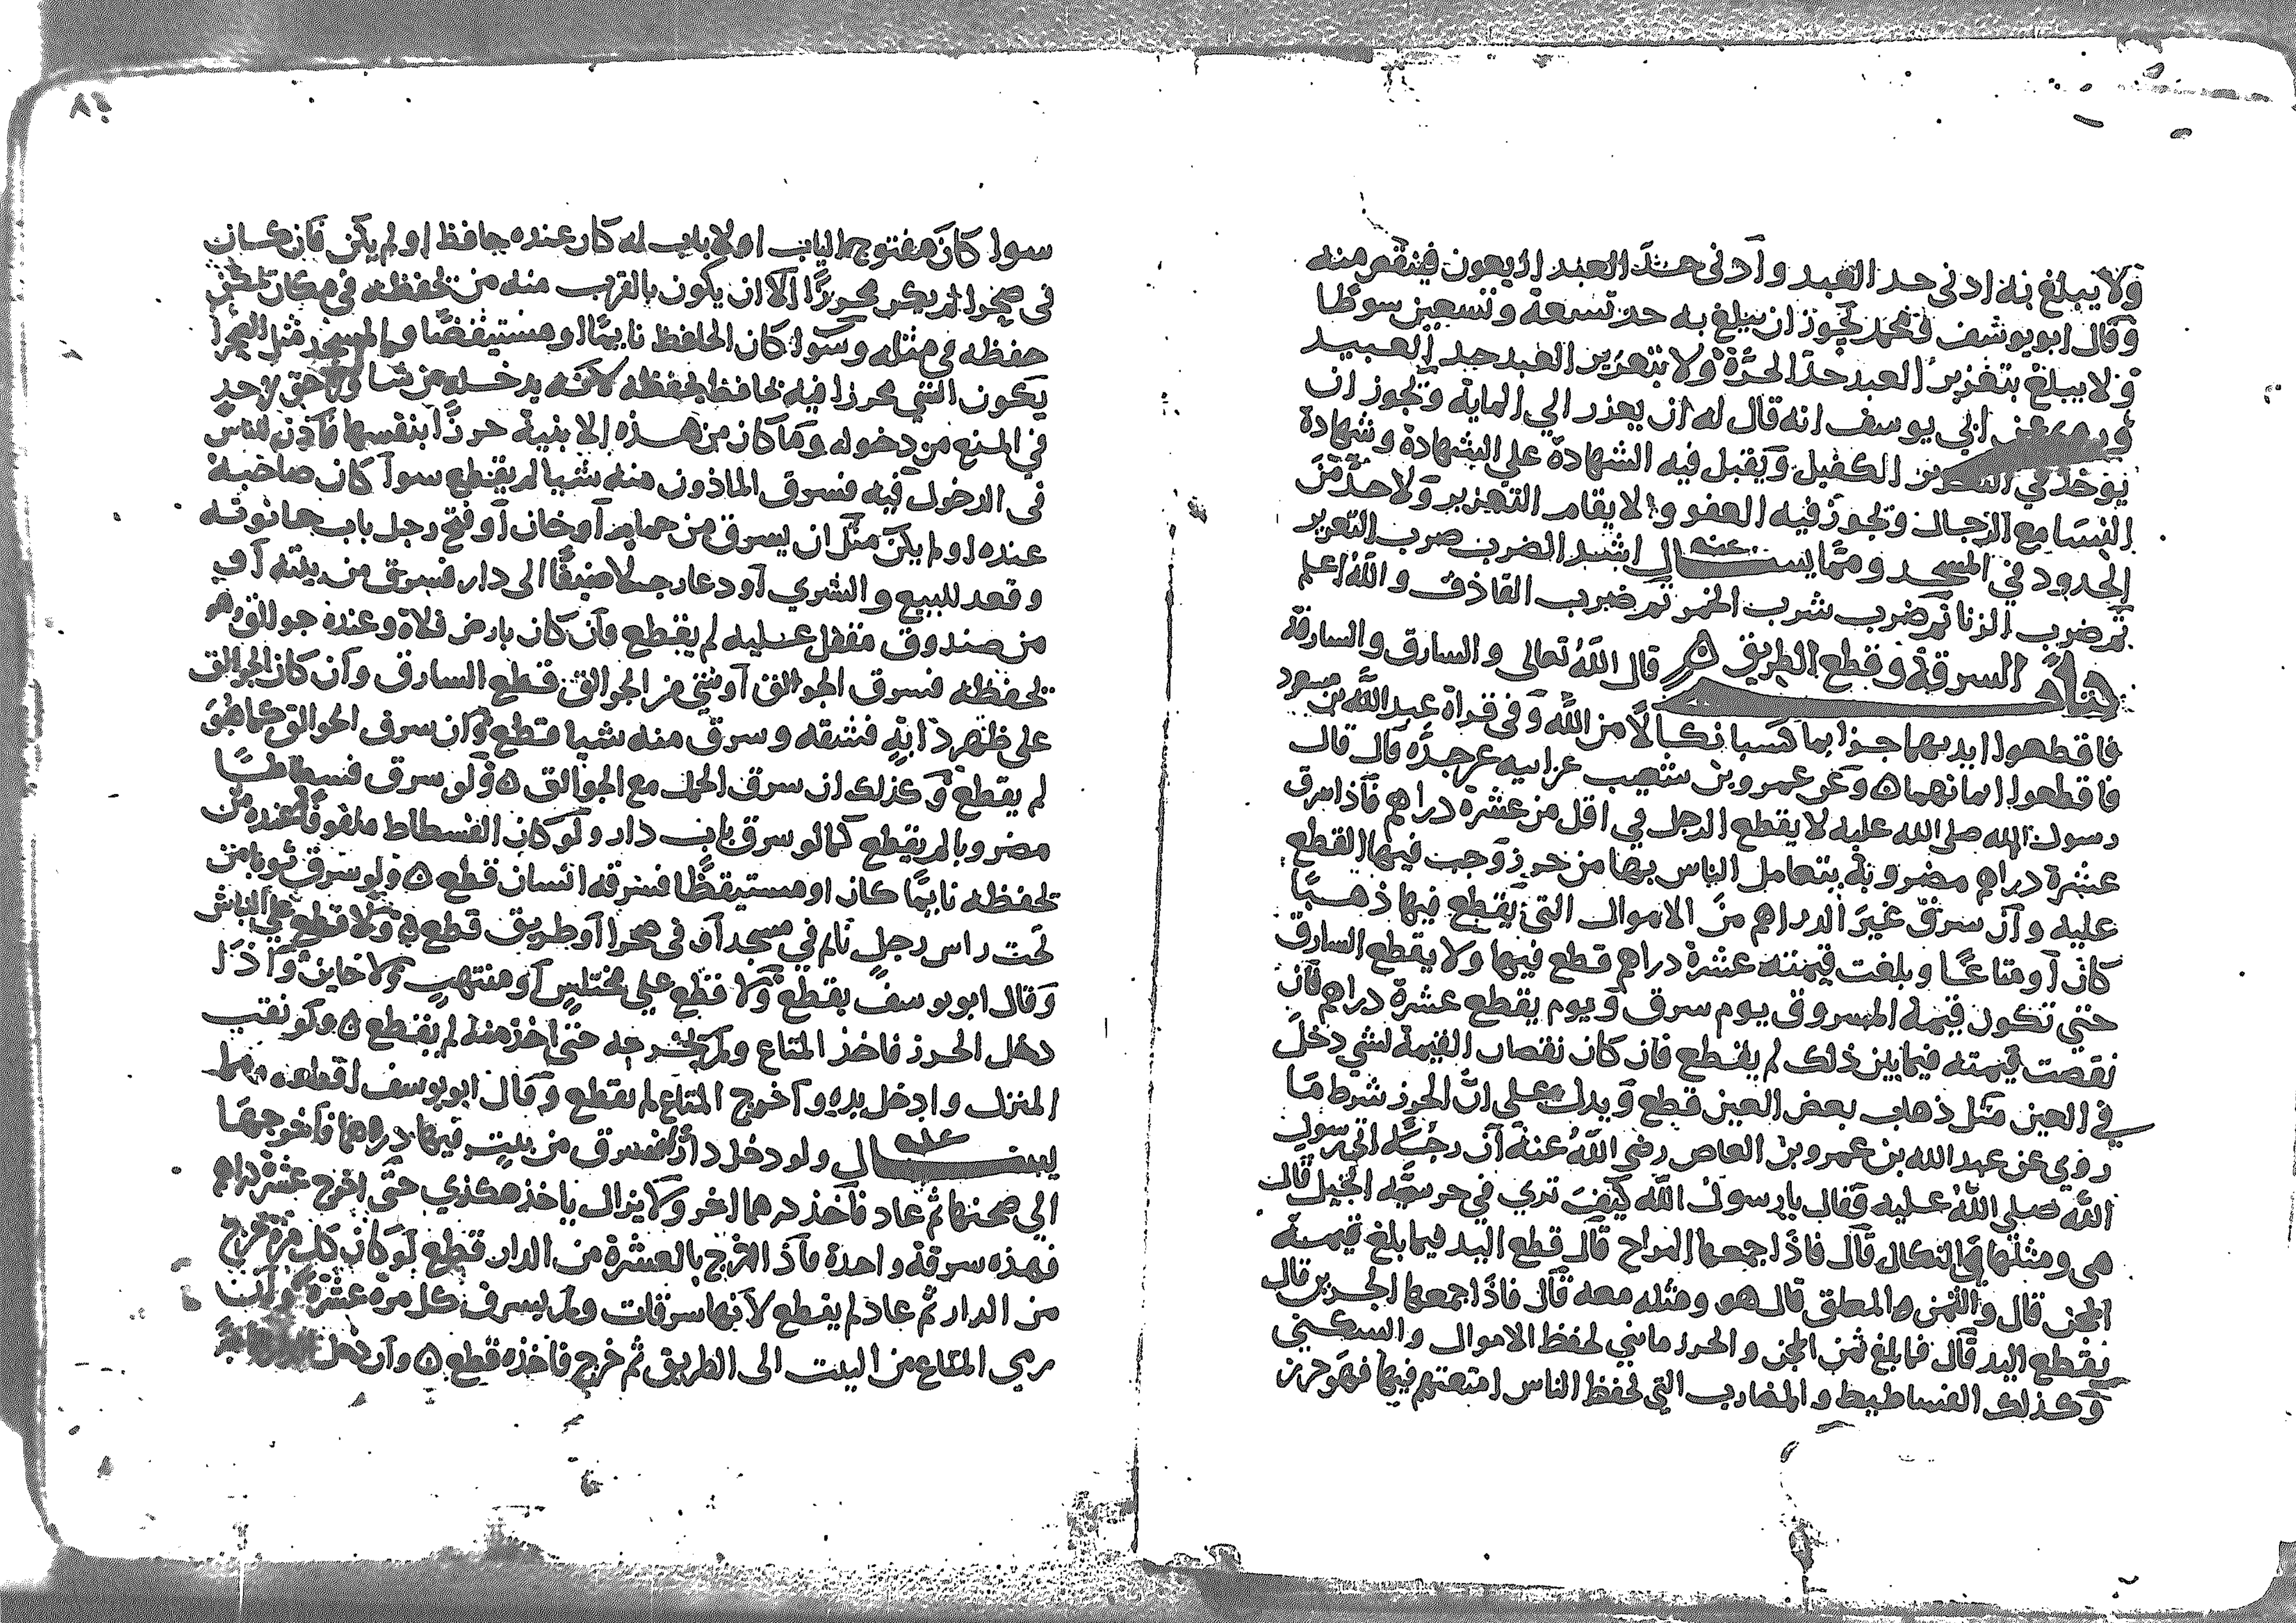 ولا يبلغ به ادنى حد العبد وادنى حد العبد اربعون فينقص منه
وقال ابو يوسف ومحمد يجوز ان يبلغ به حد تسعة وتسعين سوطا
ولا يبلغ بتعزير العبد حد الحرة ولا بتعزير العبد حد العبيد
وروي عن ابي يوسف انه قال له ان يعذر الي الماية ويجوز ان
يوخذ في الكفيل ويقبل فيه الشهادة على الشهادة وشهادة
النسا مع الرجال ويجوز فيه العفو ولا يقام التعزير ولا حد من
الحدود في المسجد ومما يسـال عنه اشد الضرب ضرب التعزير
ثم ضرب الزنا ثم ضرب شرب الخمر ثم ضرب القاذف والله اعلم
كتاب السرقة وقطع الطريق ه قال الله تعالى والسارق والسارقة
فاقطعوا ايديهما جزا بما كسبا نكالا من الله وفي قراة عبد الله بن مسعود
فاقطعوا ايمانهما ه وعن عمرو بن شعيب عن ابيه عن جده قال قال
رسول الله صلى الله عليه لا يقطع الرجل في اقل من عشرة دراهم فاذا سرق
عشرة دراهم مضروبة يتعامل الناس بها من حرز وجب فيها القطع
عليه وان سرق غير الدراهم من الاموال التي يقطع فيها ذهبا
كان او متاعا وبلغت قيمته عشرة دراهم قطع فيها ولا يقطع السارق
حتي تكون قيمة المسروق يوم سرق ويوم يقطع عشرة دراهم فان
نقصت قيمته فيما بين ذلك لم يقطع فان كان نقصان القيمة لشي دخل
في العين مثل ذهاب بعض العين قطع ويدل علي ان الحرز شرط ما
روي عن عبد الله بن عمرو بن العاص رضي الله عنه ان رجلا اتي رسول
الله صلى الله عليه فقال يا رسول الله كيف تري في حريسة الجبل قال
هي ومثلها والنكال قال فاذا جمعها المراح قال قطع اليد فيما بلغ قيمته
المجن قال والثمر المعلق قال هو ومثله معه قال فاذا جمعها الجرين قال
يقطع اليد قال فما بلغ ثمن المجن والحرز ما بني لحفظ الاموال والسكني
وكذلك الفساطيط والمضارب التي لحفظ الناس امتعتهم فيها فهو حرز
سوا كان مفتوح الباب او لا باب له كان عنده حافظ او لم يكن فان كان
في صحرا لم يكن محرزا الا ان يكون بالقرب منه من يحفظه في مكان يمكن
حفظه في مثله وسوا كان الحافظ نايما او مستيقضا والمسجد مثل الصحرا
يكون الشي محرزا فيه بحافظ يحفظه لانه يدخله من شا ولا حق لاحد
في المنع من دخوله وما كان من هذه الابنية حرزا بنفسها فاذن للناس
في الدخول فيه فسرق الماذون منه شيا لم يقطع سوا كان صاحبه
عنده او لم يكن مثل ان يسرق من حمام او خان او فتح رجل باب حانوته
وقعد للبيع والشري او دعا رجلا ضيفا الى دار فسرق من بيته او
من صندوق مقفل عليه لم يقطع فان كان بارض فلاة وعنده جوالق وهو
يحفظه فسرق الجوالق او شي من الجوالق قطع السارق وان كان الجوالق
على ظهر دابة فشقه وسرق منه شيا قطع وان سرق الجوالق كما هو
لم يقطع وكذلك ان سرق الجمل مع الجوالق ه ولو سرق فسطاطا
مضروبا لم يقطع كما لو سرق باب دار ولو كان الفسطاط ملفوفا عنده من
يحفظه نايما كان او مستيقظا فسرقه انسان قطع ه ولو سرق ثوبا من
تحت راس رجل نايم في مسجد او في صحرا او طريق قطع ه ولا قطع علي النباش
وقال ابو يوسف يقطع ولا قطع علي مختلس او منتهب ولا خاين واذا
دخل الحرز فاخذ المتاع ولم يخرجه حتى اخذ منه لم يقطع ه ولو نقب
المنزل وادخل يده واخرج المتاع لم يقطع وقال ابو يوسف اقطعه ومما
يسـال عنه ولو دخل دارا فسرق من بيت فيها درهما فاخرجها
الى صحنها ثم عاد فاخذ درهما اخر ولا يزال ياخذ هكذي حتى اخرج عشرة دراهم
فهذه سرقة واحدة فاذا اخرج بالعشرة من الدار قطع لو كان كل مرة خرج
من الدار ثم عاد لم يقطع لانها سرقات ولم يسرق كل مرة عشرة ولو ان
رمي المتاع من البيت الى الطريق ثم خرج فاخذه قطع ه وان